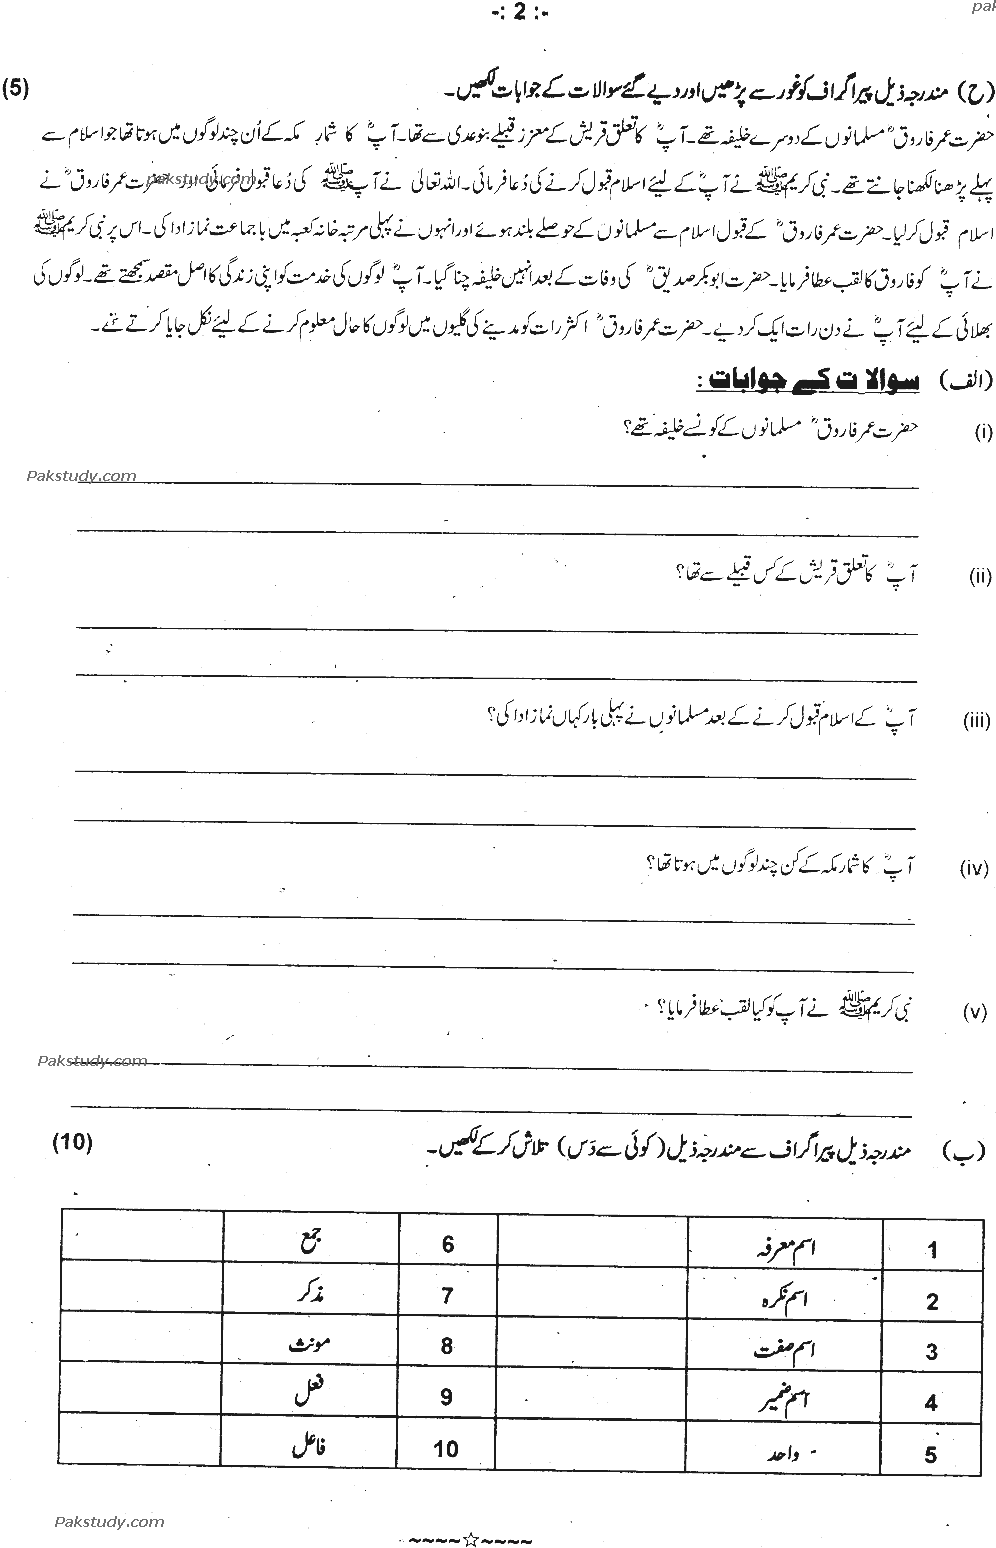 -: 2 :-
pak
(ح) مندرجہ ذیل پیراگراف کو غور سے پڑھیں اور دیے گئے سوالات کے جوابات لکھیں۔ (5)
حضرت عمر فاروقؓ مسلمانوں کے دوسرے خلیفہ تھے۔ آپؓ کا تعلق قریش کے معزز قبیلے بنو عدی سے تھا۔ آپؓ کا شمار مکہ کے اُن چند لوگوں میں ہوتا تھا جو اسلام سے
پہلے پڑھنا لکھنا جانتے تھے۔ نبی کریم ﷺ نے آپؓ کے لیئے اسلام قبول کرنے کی دُعا فرمائی۔ اللہ تعالیٰ نے آپ ﷺ کی دُعا قبول فرمائی اور حضرت عمر فاروقؓ نے
pakstudy.com
اسلام قبول کر لیا۔ حضرت عمر فاروقؓ کے قبول اسلام سے مسلمانوں کے حوصلے بلند ہوئے اور انہوں نے پہلی مرتبہ خانہ کعبہ میں با جماعت نماز ادا کی۔ اس پر نبی کریم ﷺ
نے آپؓ کو فاروق کا لقب عطا فرمایا۔ حضرت ابوبکر صدیقؓ کی وفات کے بعد انہیں خلیفہ چنا گیا۔ آپؓ لوگوں کی خدمت کو اپنی زندگی کا اصل مقصد سمجھتے تھے۔ لوگوں کی
بھلائی کے لیئے آپؓ نے دن رات ایک کر دیے۔ حضرت عمر فاروقؓ اکثر رات کو مدینے کی گلیوں میں لوگوں کا حال معلوم کرنے کے لیئے نکل جایا کرتے تھے۔
(الف) سوالات کے جوابات :
(i) حضرت عمر فاروقؓ مسلمانوں کے کونسے خلیفہ تھے؟
Pakstudy.com
(ii) آپؓ کا تعلق قریش کے کس قبیلے سے تھا؟
(iii) آپؓ کے اسلام قبول کرنے کے بعد مسلمانوں نے پہلی بار کہاں نماز ادا کی؟
(iv) آپؓ کا شمار مکہ کے کن چند لوگوں میں ہوتا تھا؟
(v) نبی کریم ﷺ نے آپ کو کیا لقب عطا فرمایا؟
Pakstudy.com
(ب) مندرجہ ذیل پیراگراف سے مندرجہ ذیل (کوئی سے دَس) تلاش کر کے لکھیں۔ (10)
1 اسم معرفہ 6 جمع
2 اسم نکرہ 7 مذکر
3 اسم صفت 8 مونث
4 اسم ضمیر 9 فعل
5 واحد 10 فاعل
Pakstudy.com
~~~~☆~~~~